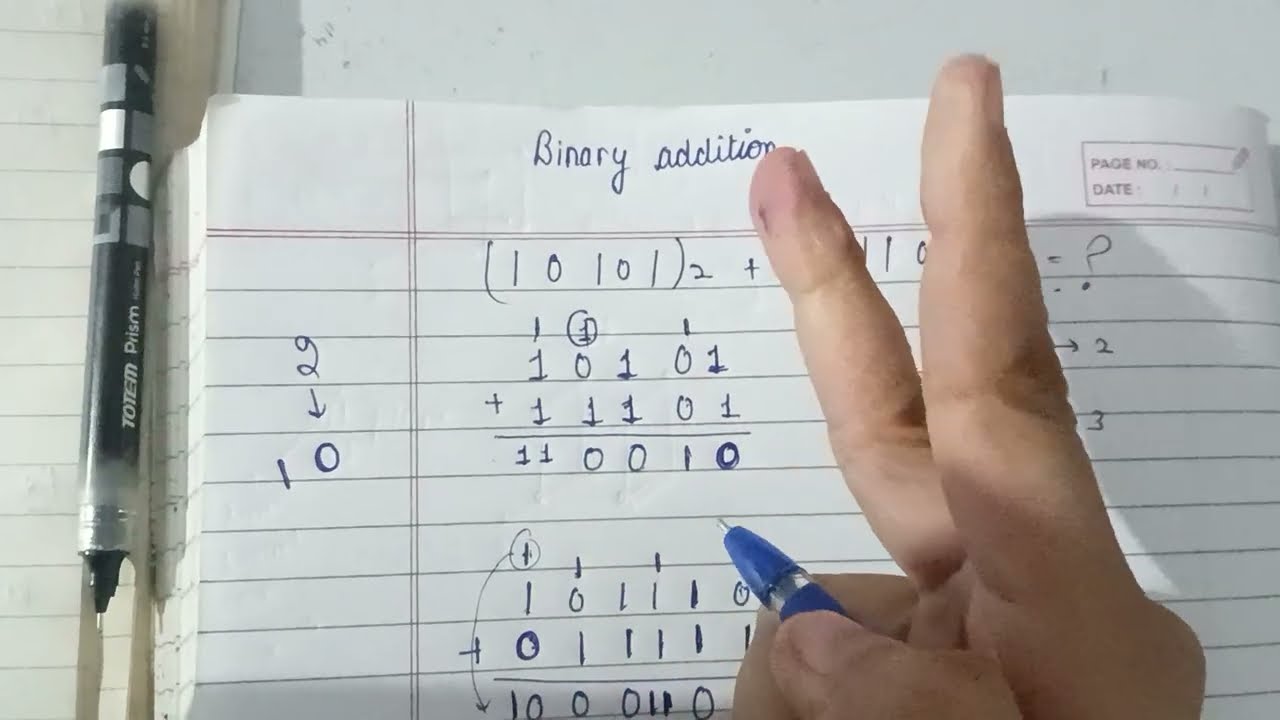 Binary addition
PAGE NO. :
DATE : / /
TOTEM Prism
(1 0 1 0 1)2 + 1 1 0 = ?
1 1 1
2 1 0 1 0 1 → 2
↓ + 1 1 1 0 1 3
1 0 1 1 0 0 1 0
1 1 1
1 0 1 1 1 0
+ 0 1 1 1 1 1
1 0 0 0 1 1 0